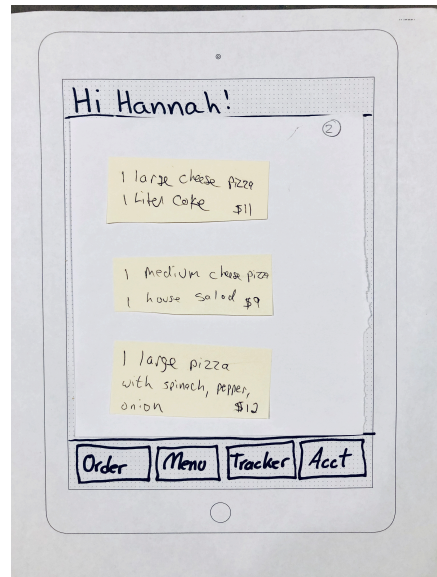 Hi Hannah!
2
1 large cheese pizza
1 Liter Coke $11
1 medium cheese pizza
1 house salad $9
1 large pizza
with spinach, pepper,
onion $12
Order Menu Tracker Acct